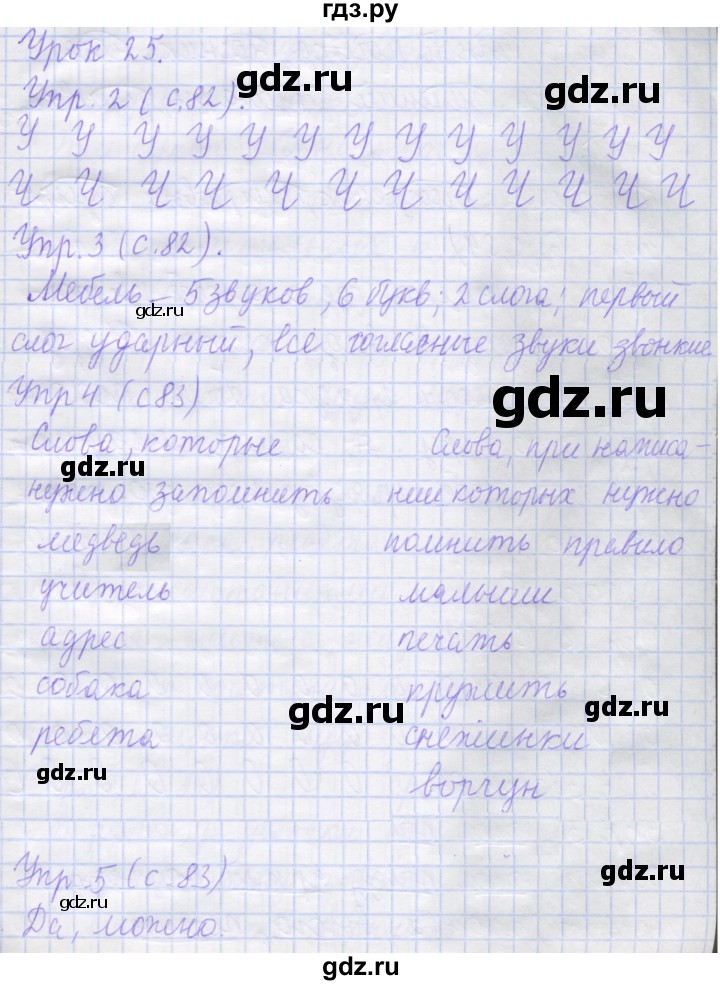 гдз.ру
Урок 25.
gdz.ru
gdz.ru
Упр. 2 (с.82).
У У У У У У У У У У У У У
Ч Ч Ч Ч Ч Ч Ч Ч Ч Ч Ч Ч
Упр. 3 (с.82).
Мебель – 5 звуков, 6 букв; 2 слога; первый
gdz.ru
слог ударный, все согласные звуки звонкие
Упр 4 (с83)
gdz.ru
Слова, которые
нужно запомнить
медведь
учитель
адрес
собака
ребята
Слова, при написа-
нии которых нужно
помнить правило
малыши
печать
кружить
снежинки
ворчун
gdz.ru
gdz.ru
gdz.ru
gdz.ru
Упр. 5 (с.83)
gdz.ru
gdz.ru
Да, можно.
gdz.ru